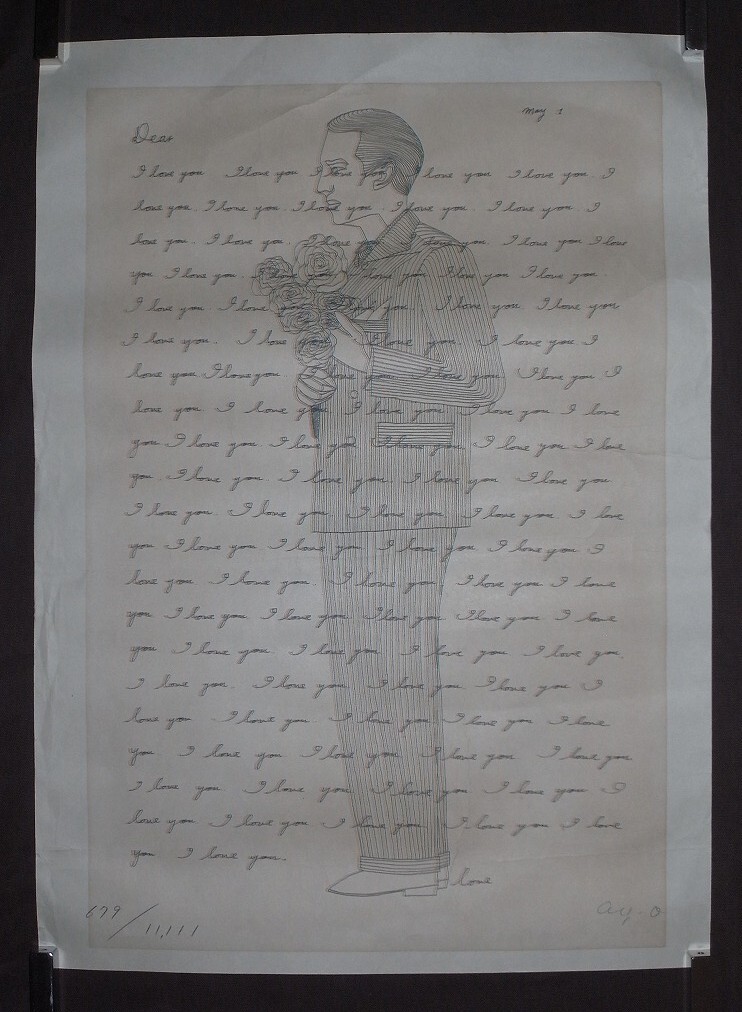 May 1
Dear
I love you I love you I love you I love you I love you. I
love you. I love you. I love you. I love you. I love you. I
love you. I love you. I love you I love you. I love you I love
you I love you. I love you I love you I love you I love you
I love you. I love you I love you. I love you. I love you
I love you. I love you I love you. I love you. I
love you I love you. I love you I love you I love you I
love you I love you I love you I love you I love
you I love you. I love you I love you I love you I love
you. I love you. I love you I love you I love you
I love you. I love you I love you I love you. I love
you I love you I love you I love you I love you I
love you I love you. I love you I love you I love
you I love you I love you I love you I love you I love
you I love you I love you I love you I love you.
I love you. I love you I love you I love you I
love you I love you I love you I love you I love
you I love you I love you I love you I love you
I love you I love you I love you I love you I
love you I love you I love you I love you I love
you I love you.
love
679/11,111
ay-o